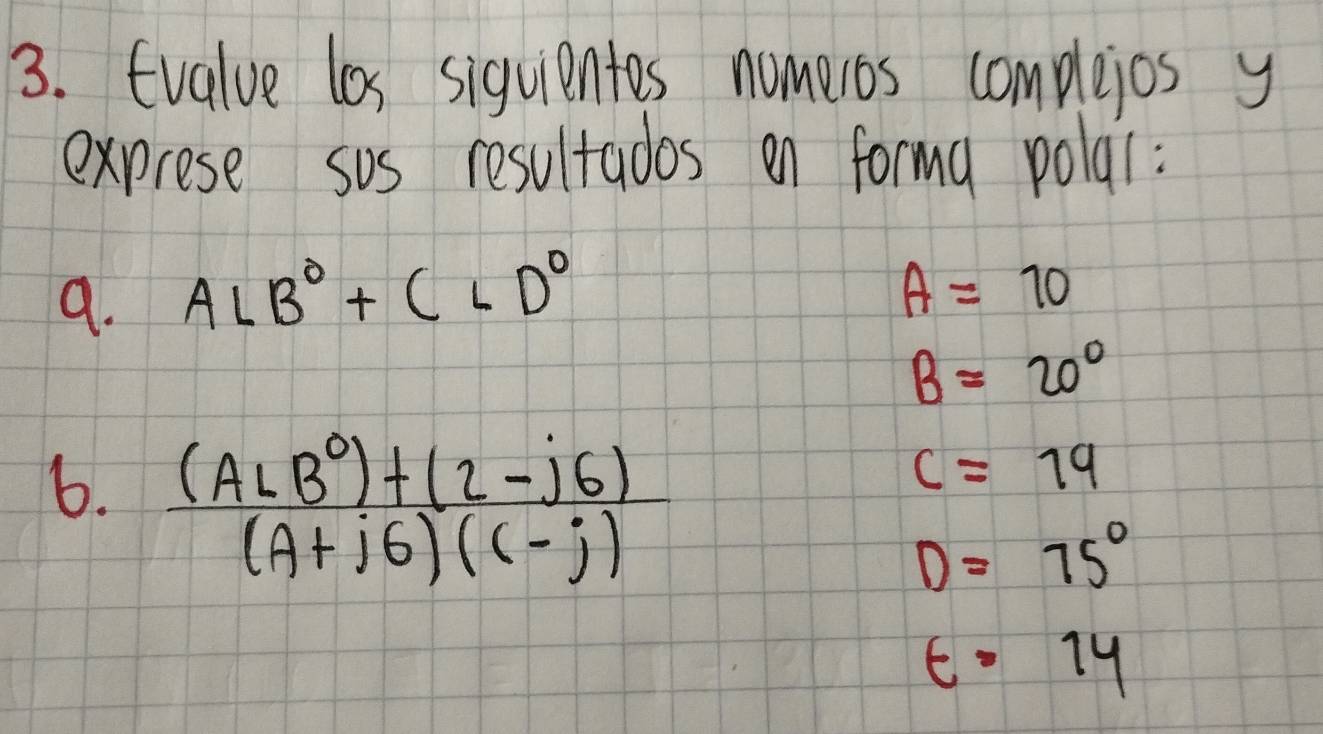 3. Evalue los siguientes numeros complejos y
exprese sus resultados en forma polar:
a. A∟B° + C∟D°
b. (A∟B°)+(2-j6)
(A+j6)(c-j)
A = 10
B = 20°
C = 19
D = 15°
E = 14